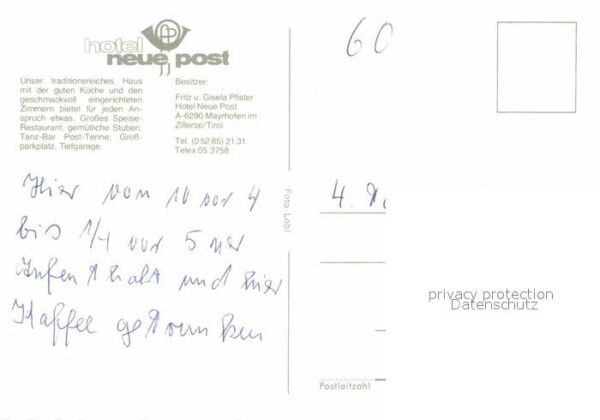 hotel
neue post
Unser traditionsreiches Haus
mit der guten Küche und den
geschmackvoll eingerichteten
Zimmern bietet für jeden An-
spruch etwas. Großes Speise-
Restaurant, gemütliche Stuben,
Tanz-Bar Post-Tenne, Groß-
parkplatz, Tiefgarage.
Besitzer:
Fritz u. Gisela Pfister
Hotel Neue Post
A-6290 Mayrhofen im
Zillertal/Tirol
Tel. (0 52 85) 21 31
Telex 05 3758
60
Hier von 10 vor 4
bis 1/4 vor 5 Uhr
Aufenthalt und hier
Kaffee getrunken
Foto Lobl
4.
Postleitzahl
privacy protection
Datenschutz